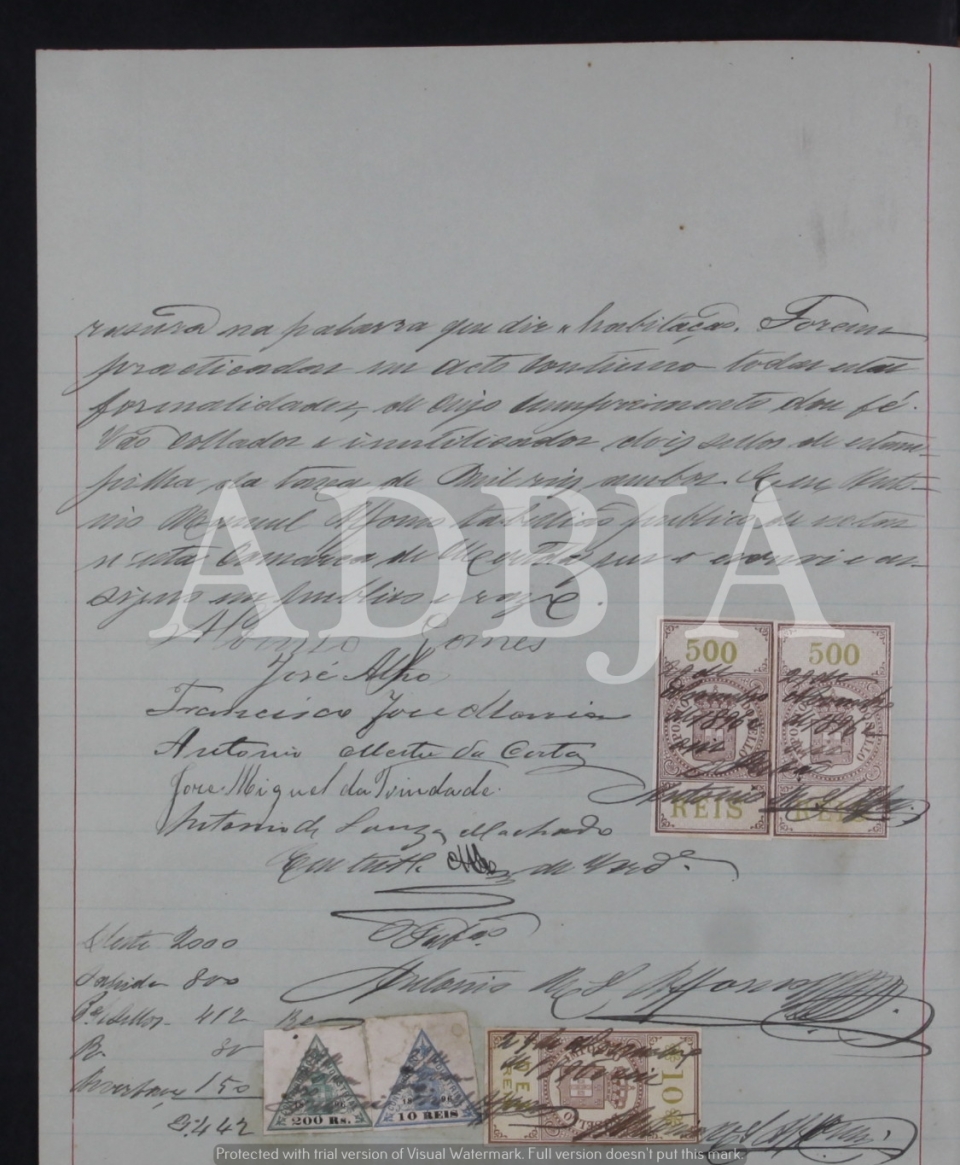 rasura na palavra que diz "habitação. Foram
practicadas em acto continuo todas estas
formalidades, de cujo cumprimento dou fé.
Vão collados e inutilisados dois sellos de estam-
pilha da taxa de mil réis ambos. E eu, Anto-
nio Manuel Affonso tabellião publico de notas
n'esta Comarca de Mertola que o escrevi e as-
signo em publico e raso.
ADBJA
Affonso Gomes
José Alho
Francisco José Maria
Antonio Mestre da Costa
Jose Miguel da Trindade.
Antonio de Souza Machado
Em testº de verdº
O Tabão
Antonio M. S. Affonso
500
29 de
Dezembro
de 1896 e
seis
REIS
500
29 de
Dezembro
de 1896 e
seis
REIS
2000
Sahida 800
Sellos 412
R. 80
150
3:442
200 Rs.
10 REIS
29 de Dezembro
de 189
10
Protected with trial version of Visual Watermark. Full version doesn't put this mark.